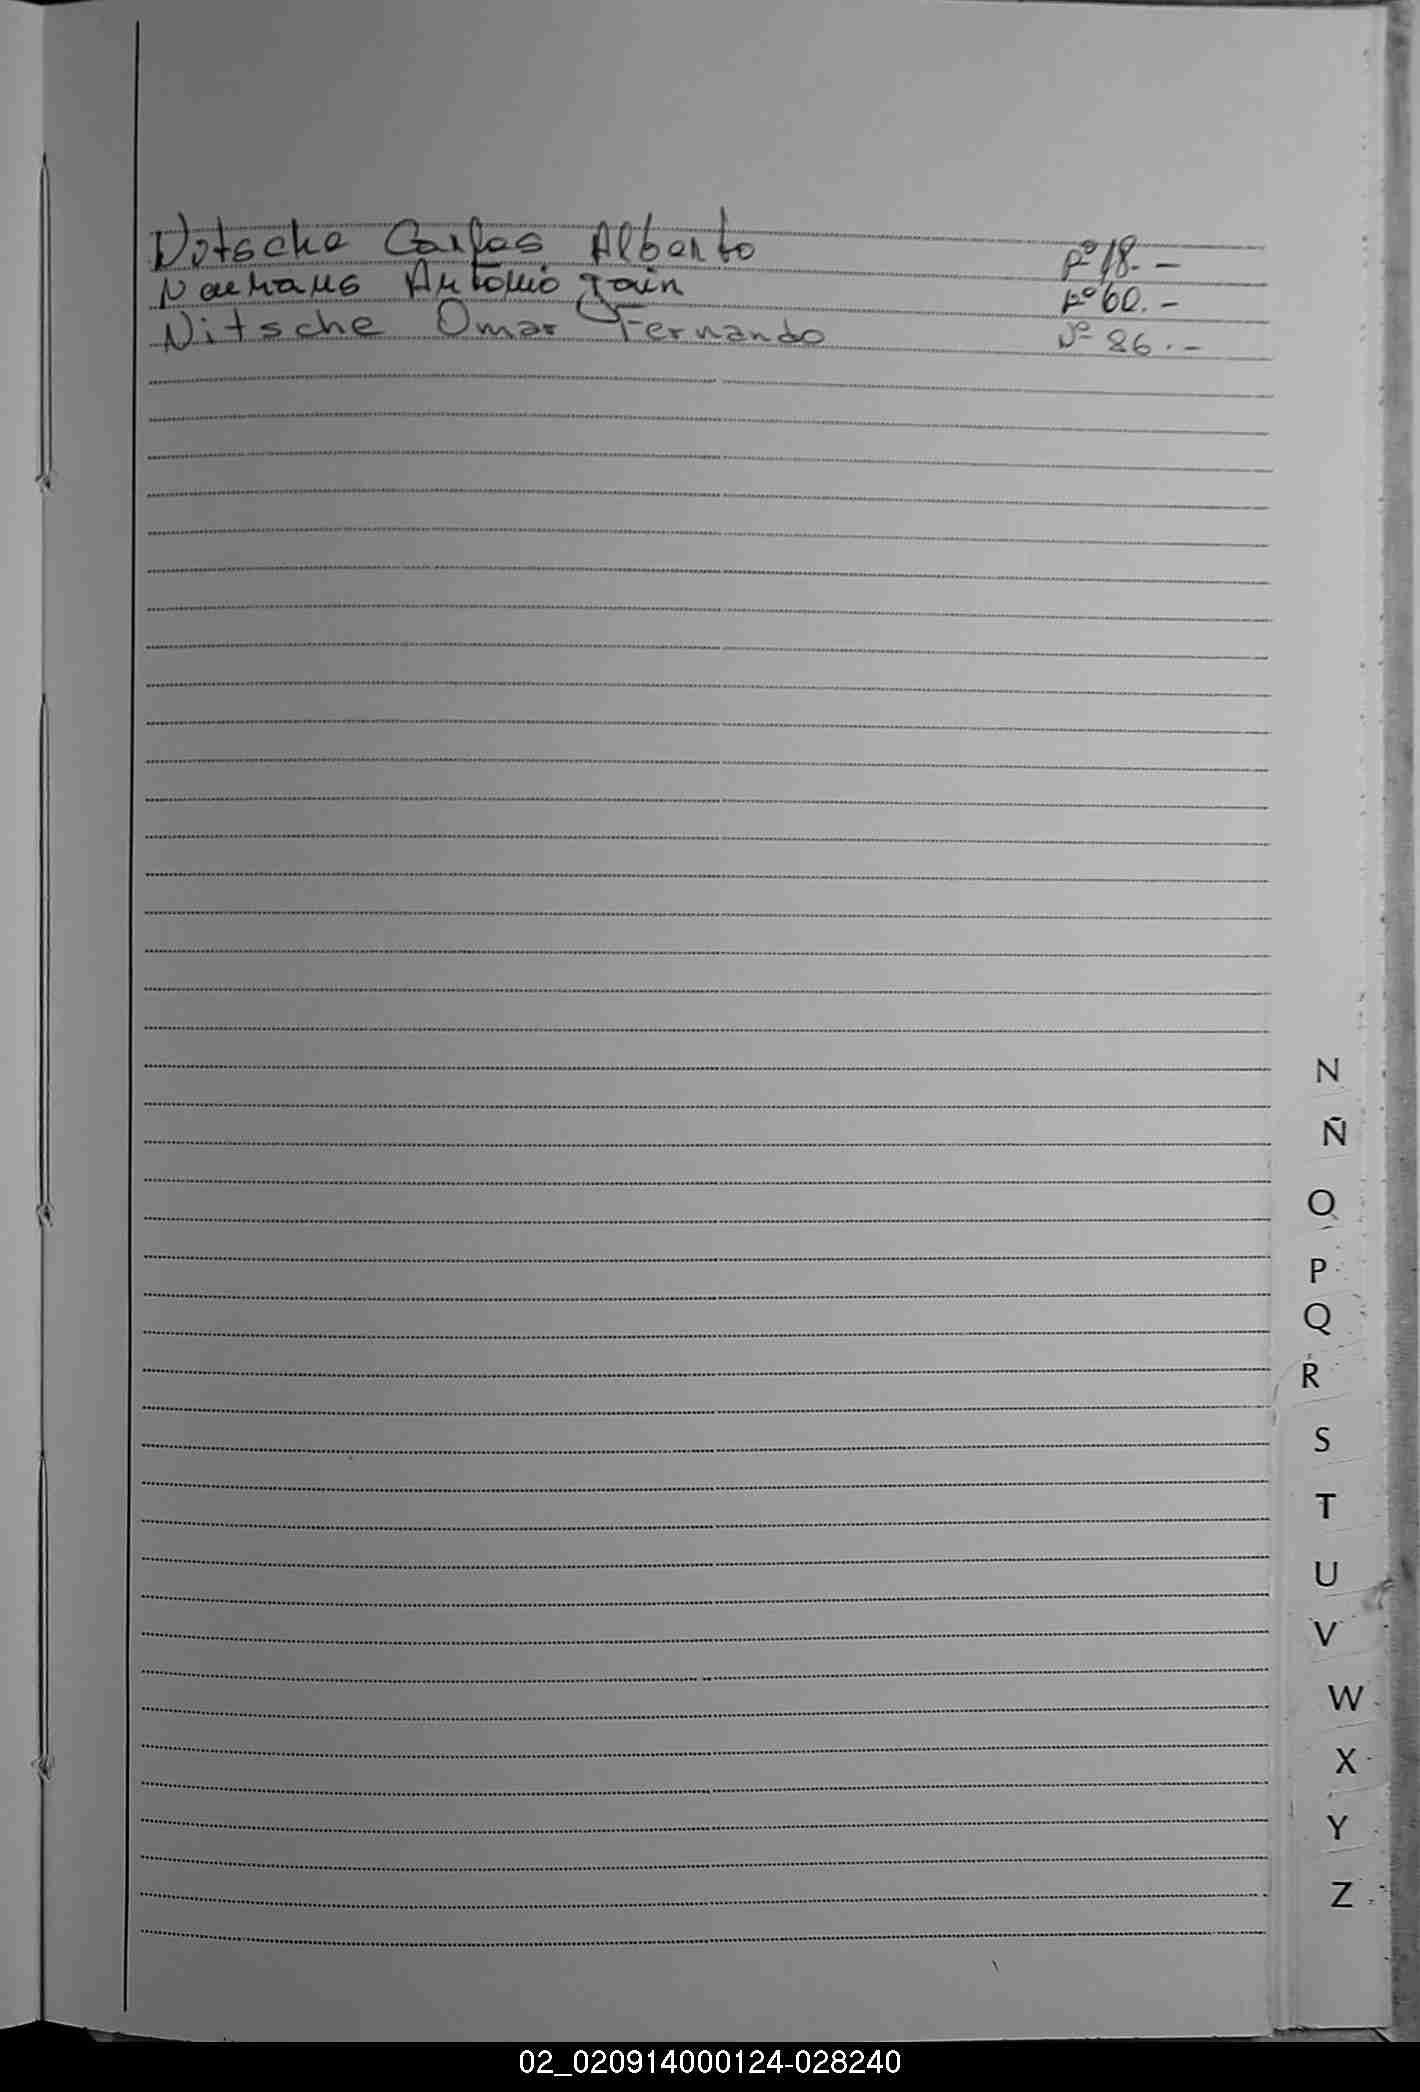 Nitsche Carlos Alberto Nº 18.-
Neuhaus Antonio Nº 60.-
Nitsche Omar Fernando Nº 86.-
N
Ñ
O
P
Q
R
S
T
U
V
W
X
Y
Z
02_020914000124-028240